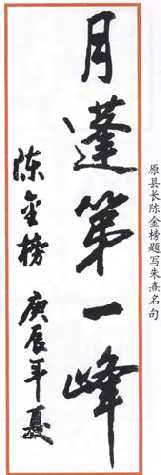 原县长陈金榜题写朱熹名句
月蓬第一峰
陈金榜 庚辰年夏